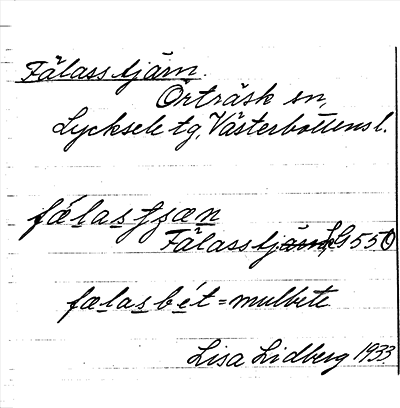 Fälasstjärn.
Örträsk sn,
Lycksele tg, Västerbottens l.
fǽlasʃʃæn
Fälasstjärn, LG 550
fælasbét = mulbete
Lisa Lidberg 1933